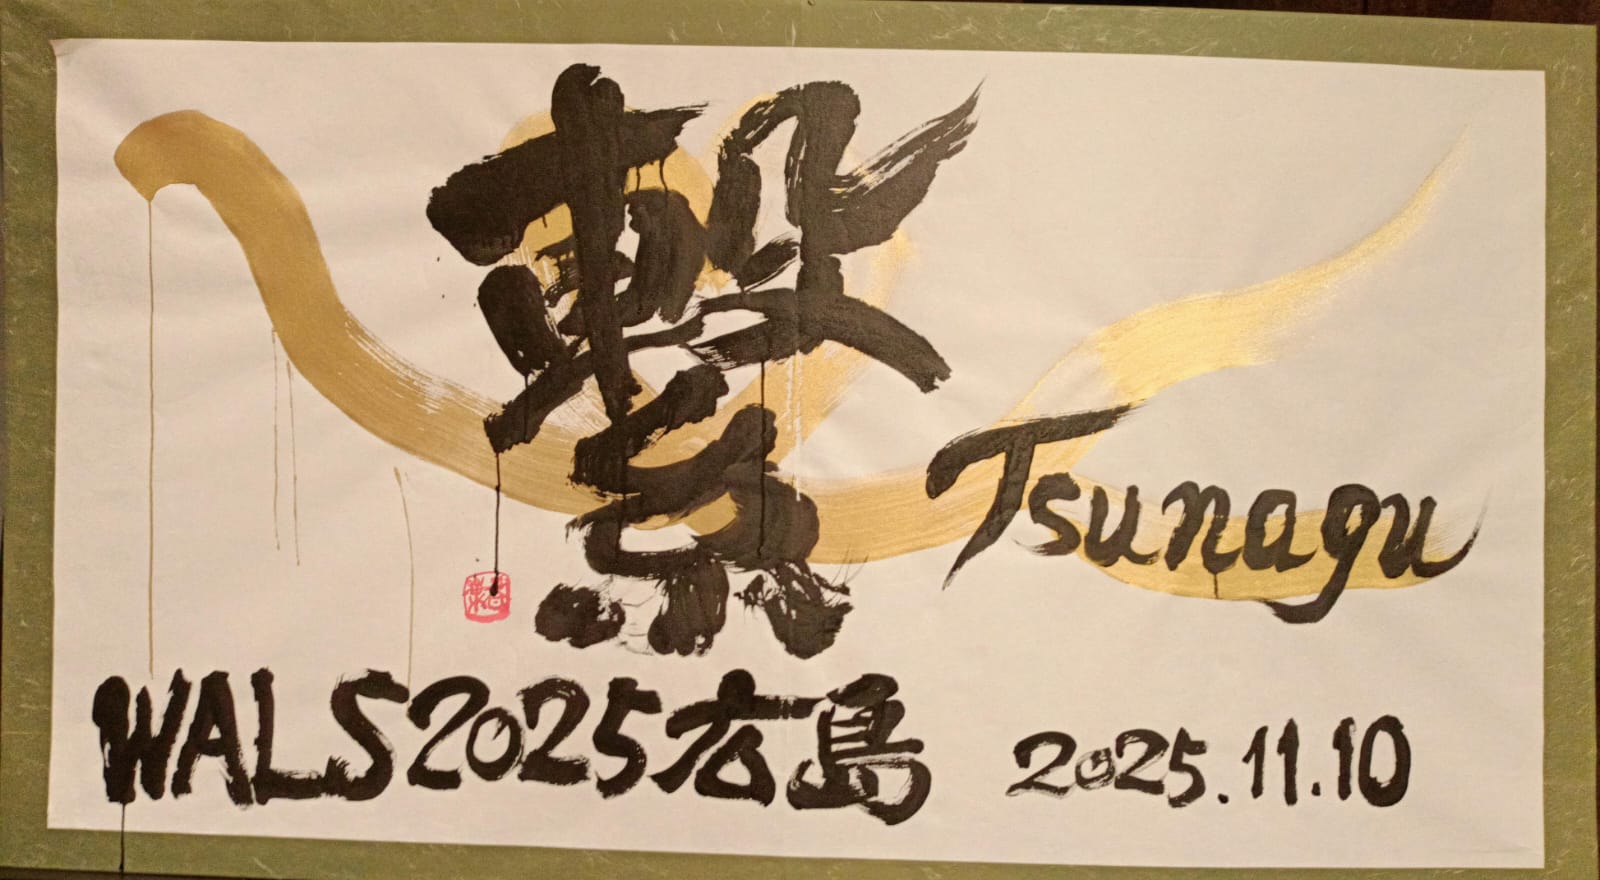 繋
Tsunagu
WALS2025広島
2025.11.10